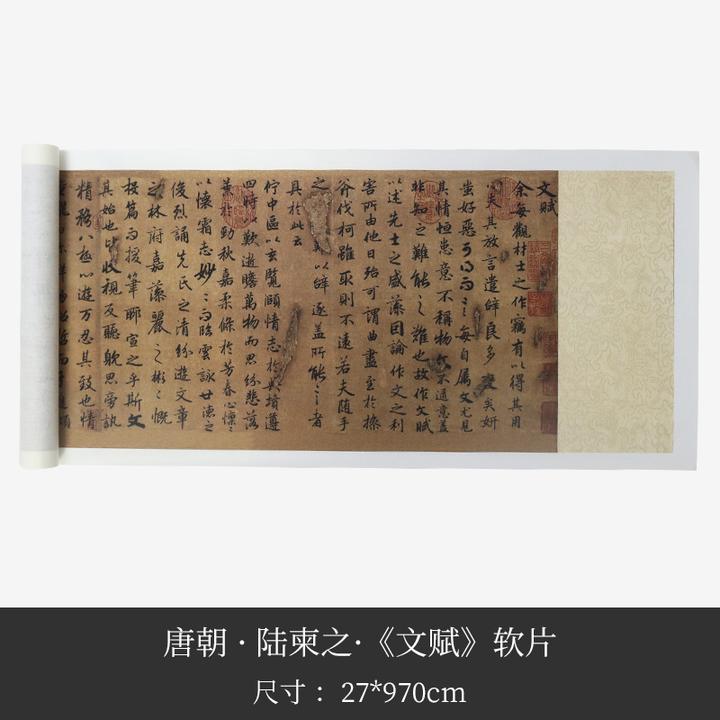 文賦
余每觀材士之作竊有以得其用
心夫其放言遣辭良多變矣妍
蚩好惡可得而言每自屬文尤見
其情恒患意不稱物文不逮意盖
非知之難能之難也故作文賦
以述先士之盛藻因論作文之利
害所由他日殆可謂曲盡至於操
斧伐柯雖取則不遠若夫随手
之難以辭逐盖所能言者
具於此云
佇中區以玄覽頤情志於典墳遵
四時以歎逝瞻萬物而思紛悲落
葉於勁秋嘉柔條於芳春心懍々
以懷霜志妙々而臨雲詠世德之
俊烈誦先民之清芬遊文章
之林府嘉藻麗之彬々慨
投篇而援筆聊宣之乎斯文
其始也皆收視反聽耽思旁訊
精騖八極心遊万仞其致也情
唐朝·陆柬之·《文赋》软片
尺寸：27*970cm